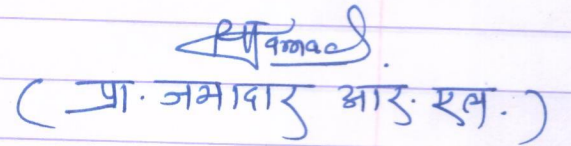 ( प्रा. जमादार आर. एल. )